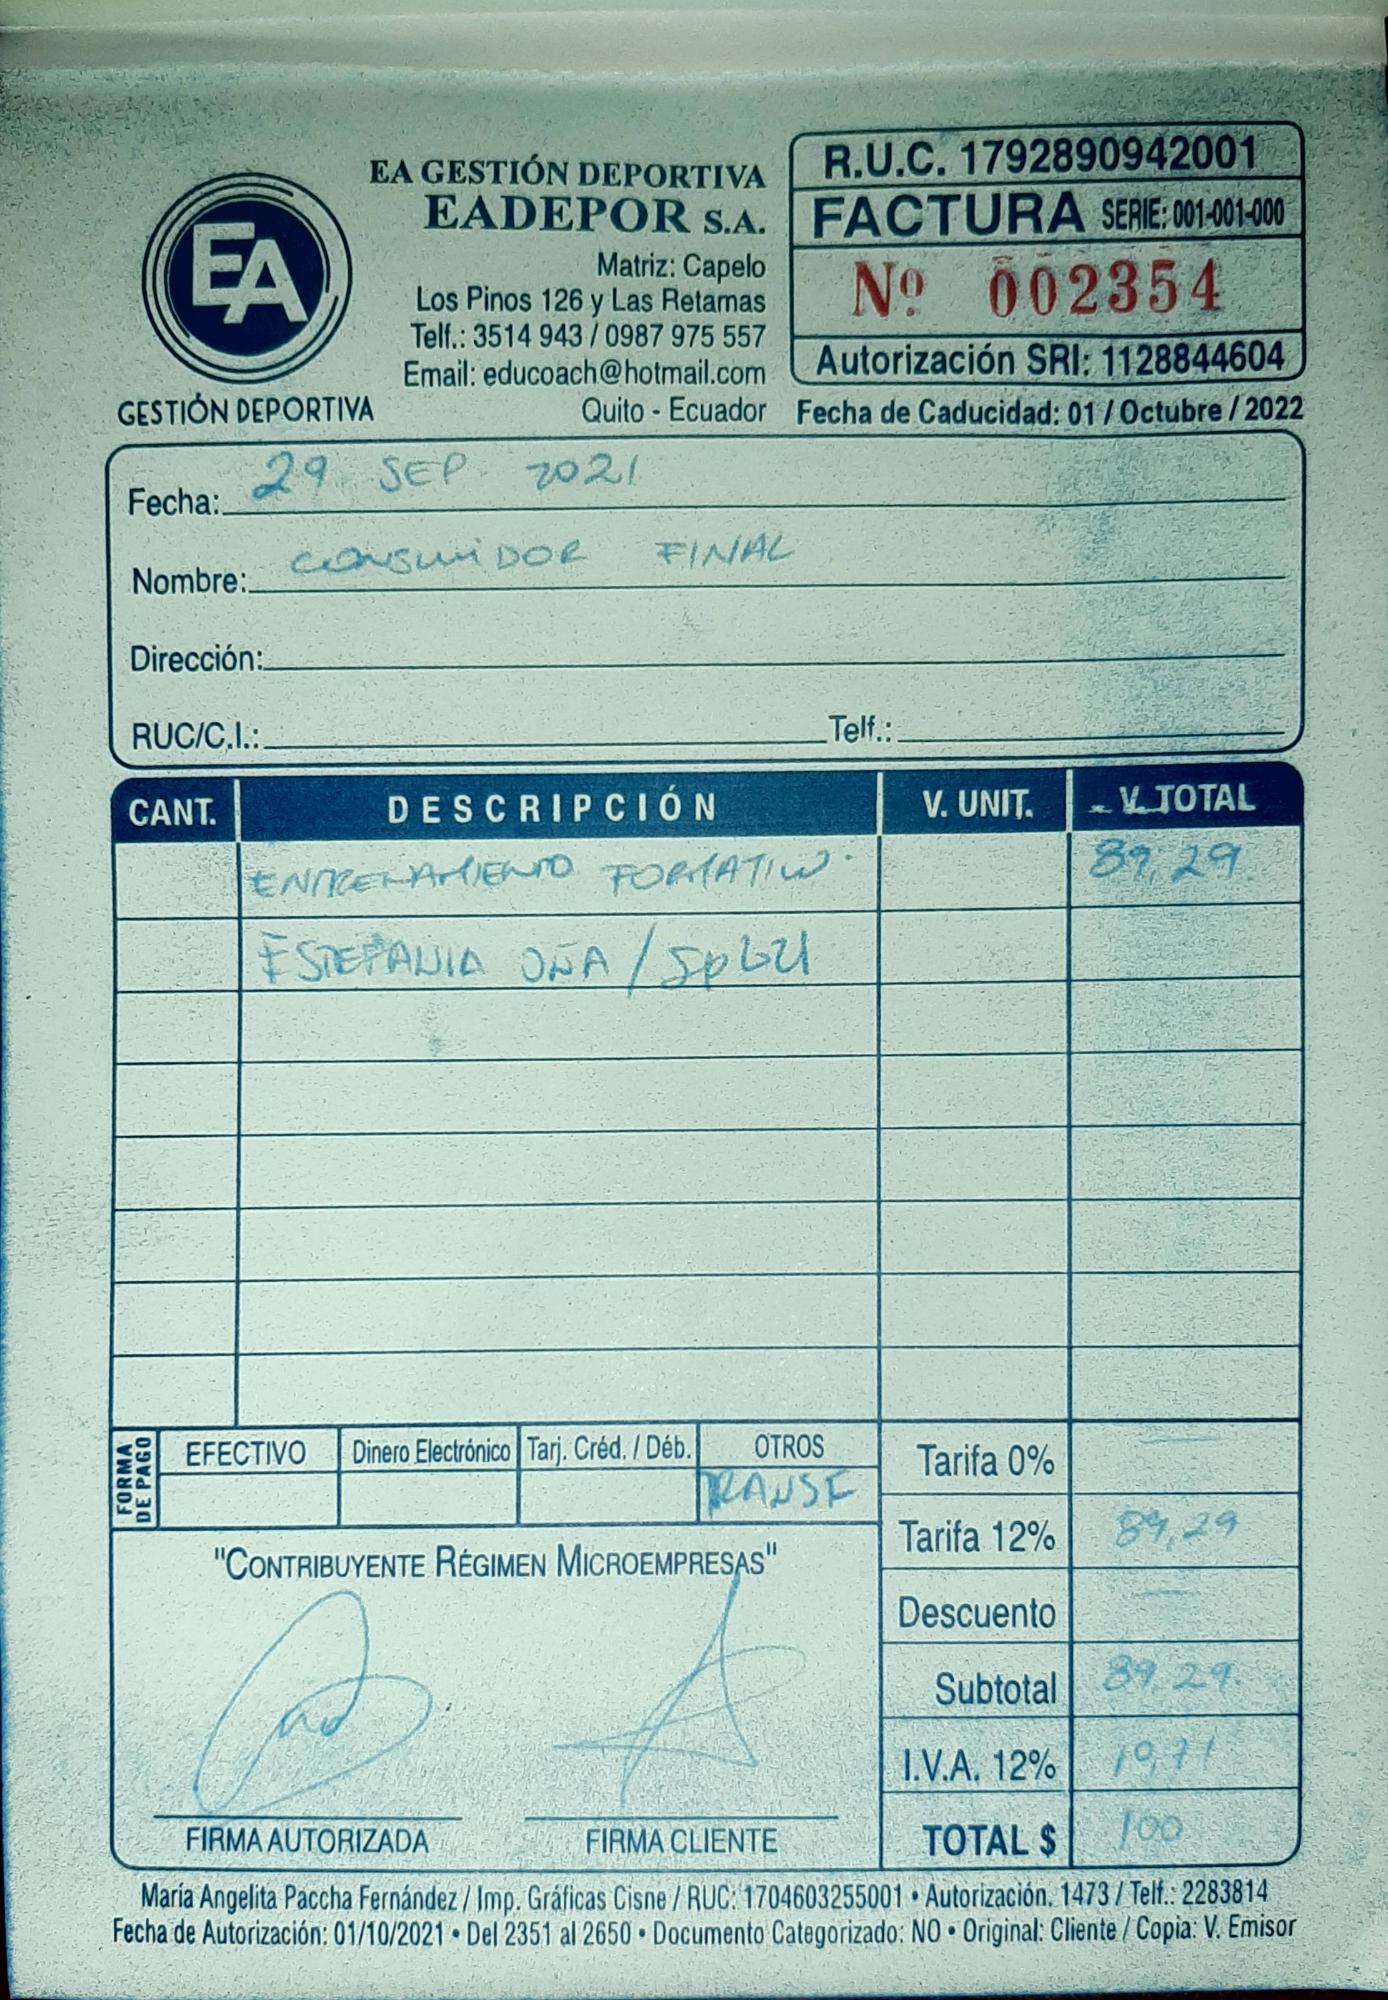 EA
GESTIÓN DEPORTIVA
EA GESTIÓN DEPORTIVA
EADEPOR S.A.
Matriz: Capelo
Los Pinos 126 y Las Retamas
Telf.: 3514 943 / 0987 975 557
Email: educoach@hotmail.com
Quito - Ecuador
R.U.C. 1792890942001
FACTURA SERIE: 001-001-000
Nº 002354
Autorización SRI: 1128844604
Fecha de Caducidad: 01 / Octubre / 2022
Fecha: 29 SEP 2021
Nombre: CONSUMIDOR FINAL
Dirección:
RUC/C.I.: Telf.:
CANT. DESCRIPCIÓN V. UNIT. V. TOTAL
ENTRENAMIENTO FORMATIVO. 89,29
ESTEFANIA OÑA /
FORMA DE PAGO
EFECTIVO Dinero Electrónico Tarj. Créd. / Déb. OTROS
TRANSF
Tarifa 0% —
Tarifa 12% 89,29
Descuento —
Subtotal 89,29
I.V.A. 12% 10,71
TOTAL $ 100
"CONTRIBUYENTE RÉGIMEN MICROEMPRESAS"
FIRMA AUTORIZADA FIRMA CLIENTE
María Angelita Paccha Fernández / Imp. Gráficas Cisne / RUC: 1704603255001 • Autorización. 1473 / Telf.: 2283814
Fecha de Autorización: 01/10/2021 • Del 2351 al 2650 • Documento Categorizado: NO • Original: Cliente / Copia: V. Emisor